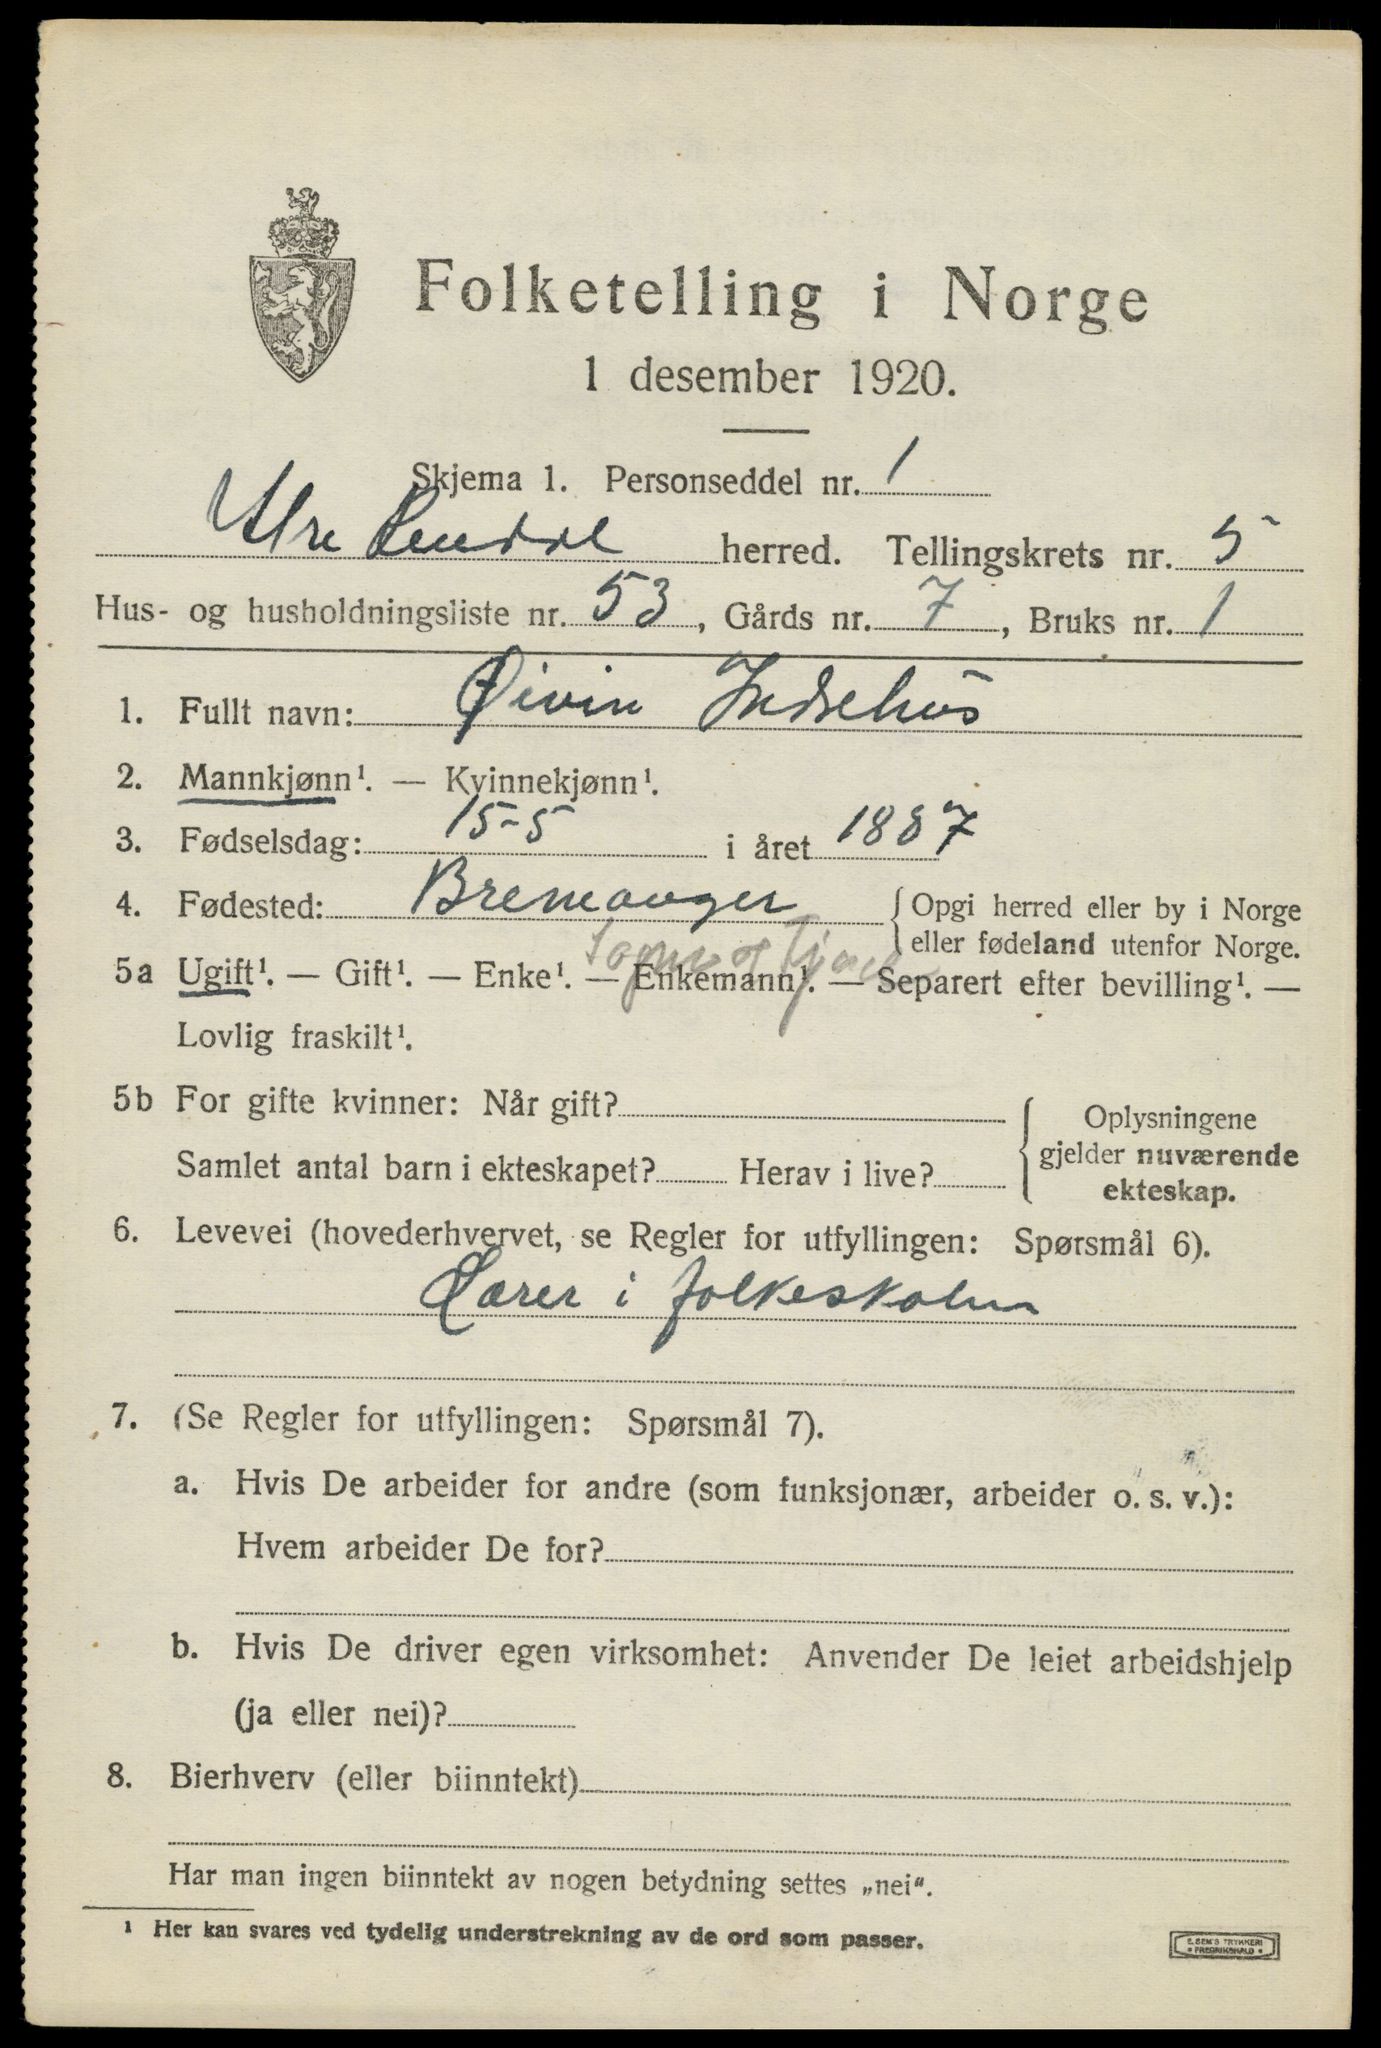 Folketelling i Norge
1 desember 1920.
Skjema 1. Personseddel nr. 1
Ytre Rendal herred. Tellingskrets nr. 5
Hus- og husholdningsliste nr. 53, Gårds nr. 7, Bruks nr. 1
1. Fullt navn: Øivin Indrehus
2. Mannkjønn¹. — Kvinnekjønn¹.
3. Fødselsdag: 15-5 i året 1887
4. Fødested: Bremanger { Opgi herred eller by i Norge
eller fødeland utenfor Norge.
Sogn og Fjordane
5a Ugift¹. — Gift¹. — Enke¹. — Enkemann¹. — Separert efter bevilling¹. —
Lovlig fraskilt¹.
5b For gifte kvinner: Når gift? { Oplysningene
gjelder nuværende
Samlet antal barn i ekteskapet? Herav i live?
ekteskap.
6. Levevei (hovederhvervet, se Regler for utfyllingen: Spørsmål 6).
Lærer i folkeskolen
7. (Se Regler for utfyllingen: Spørsmål 7).
a. Hvis De arbeider for andre (som funksjonær, arbeider o. s. v.):
Hvem arbeider De for?
b. Hvis De driver egen virksomhet: Anvender De leiet arbeidshjelp
(ja eller nei)?
8. Bierhverv (eller biinntekt)
Har man ingen biinntekt av nogen betydning settes „nei“.
¹ Her kan svares ved tydelig understrekning av de ord som passer.
E. SEM'S TRYKKERI
• FREDRIKSHALD •